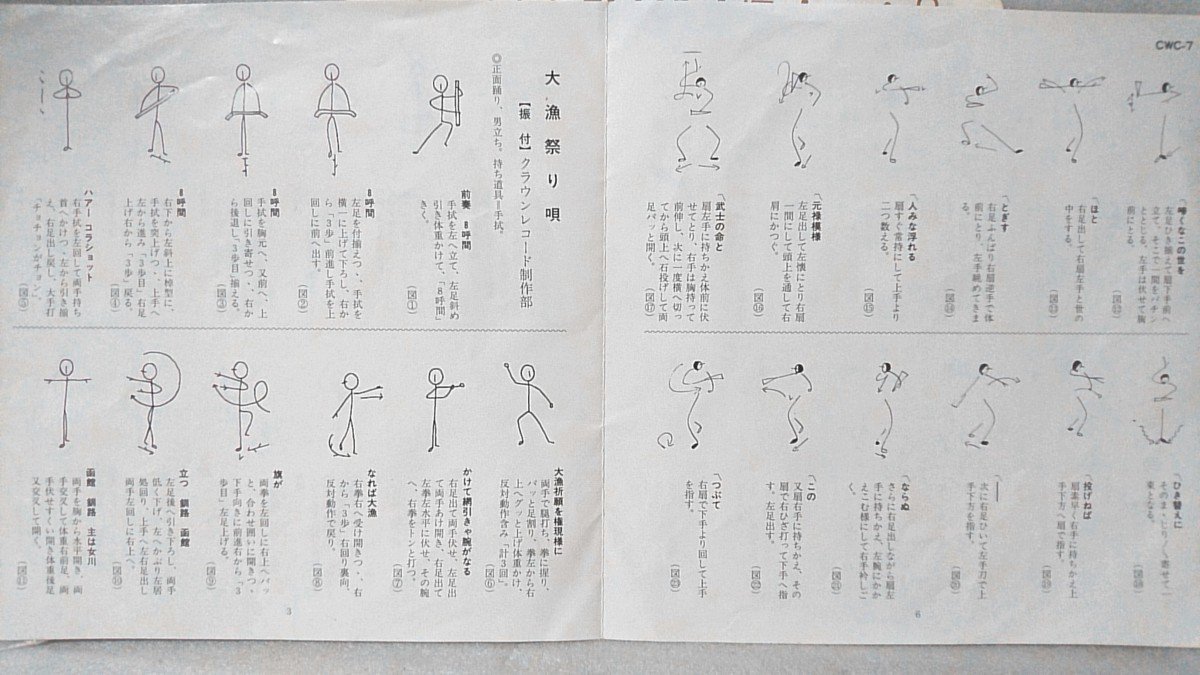 CWC-7
大漁祭り唄
【振付】クラウンレコード制作部
◎正面踊り、男立ち。持ち道具=手拭。
前奏 8呼間
手拭を左へ立て、左足斜め
引き体重かけて、「8呼間」
きく。
(図①)
8呼間
左足を付揃えつゝ、手拭を
横一に上げて下ろし、右か
ら「3歩」前進し手拭を上
回しに前へ出す。
(図②)
8呼間
手拭を胸元へ、又前へ、上
回しに引き寄せつゝ、右か
ら後退し「3歩目」揃える。
(図③)
8呼間
右下から左斜上に棹型に、
手拭を突上げつゝ、上手へ
左から進み「3歩目」右足
上げ右から「3歩」戻る。
(図④)
ハアー コラショット
右手拭を左回して両手持ち
首へかけつゝ左から引き揃
え、右足出し戻し、大手打
「チョチョンがチョン」。
(図⑤)
大漁祈願を権現様に
両手で腿打ち、拳に握り、
パッと足割り、拳左から右
上へグッと上げ体重かけ、
反対動作含み「計3回」。
(図⑥)
かけて網引きゃ腕がなる
右足出て両手伏せ、左足出
て両手あけ開き、右足出て
左拳左水平に伏せ、その腕
へ、右拳をトンと打つ。
(図⑦)
なれば大漁
右拳右へ受け開きつゝ、右
から「3歩」右回り裏向、
反対動作で戻り。
(図⑧)
旗が
両拳を左回しに右上へパッ
と、合わせ囲いに開きつゝ、
下手向きに前進右から、「3
歩目」左足上げる。
(図⑨)
立つ 釧路 函館
左足後へ引き下ろし、両手
低く下げ、左へかぶり左居
処回り、上手へ左右足出し
両手左回しに右上へ。
(図⑩)
函館 釧路 主は女川
両手を胸から水平開き、両
手交叉して体重右前足、両
手伏せすくい開き体重後足
又交叉して開く。
(図⑪)
3
「啼くなこの世を
左足ひき揃えて扇下手前へ
立て、そこで一間をパチン
ととじる、左手は伏せて胸
前にとる。
(図⑫)
「ほと
右足出して右扇左手と世の
中をする。
(図⑬)
「とぎす
右足ふんばり右扇逆手で体
前にとり、左手眺めてきま
る。
(図⑭)
「人みな浮れる
扇すぐ常持にして上手より
二つ数える。
(図⑮)
「元禄模様
左足出して左懐にとり右扇
一間にして頭上を通して右
肩にかつぐ。
(図⑯)
「武士の命と
扇左手に持ちかえ体前に伏
せてとり、右手は胸持って
前伸し、次に一度横へ切っ
てから頭上へ石投げして両
足パッと開く。
(図⑰)
「ひき替えに
そのまゝじり／＼寄せて一
束となる。
(図⑱)
「投げねば
扇素早く右手に持ちかえ上
手下方へ扇で指す。
(図⑲)
「――
次に右足ひいて左手刀で上
手下方を指す。
(図⑳)
「ならぬ
さらに右足出しながら扇左
手に持ちかえ、左腕にかか
えこむ様にして右手衿しご
く。
(図㉑)
「この
又扇右手に持ちかえ、その
扇で右ひざ打って下手へ指
す。左足出す。
(図㉒)
「つぶて
右扇で下手より回して上手
を指す。
(図㉓)
6